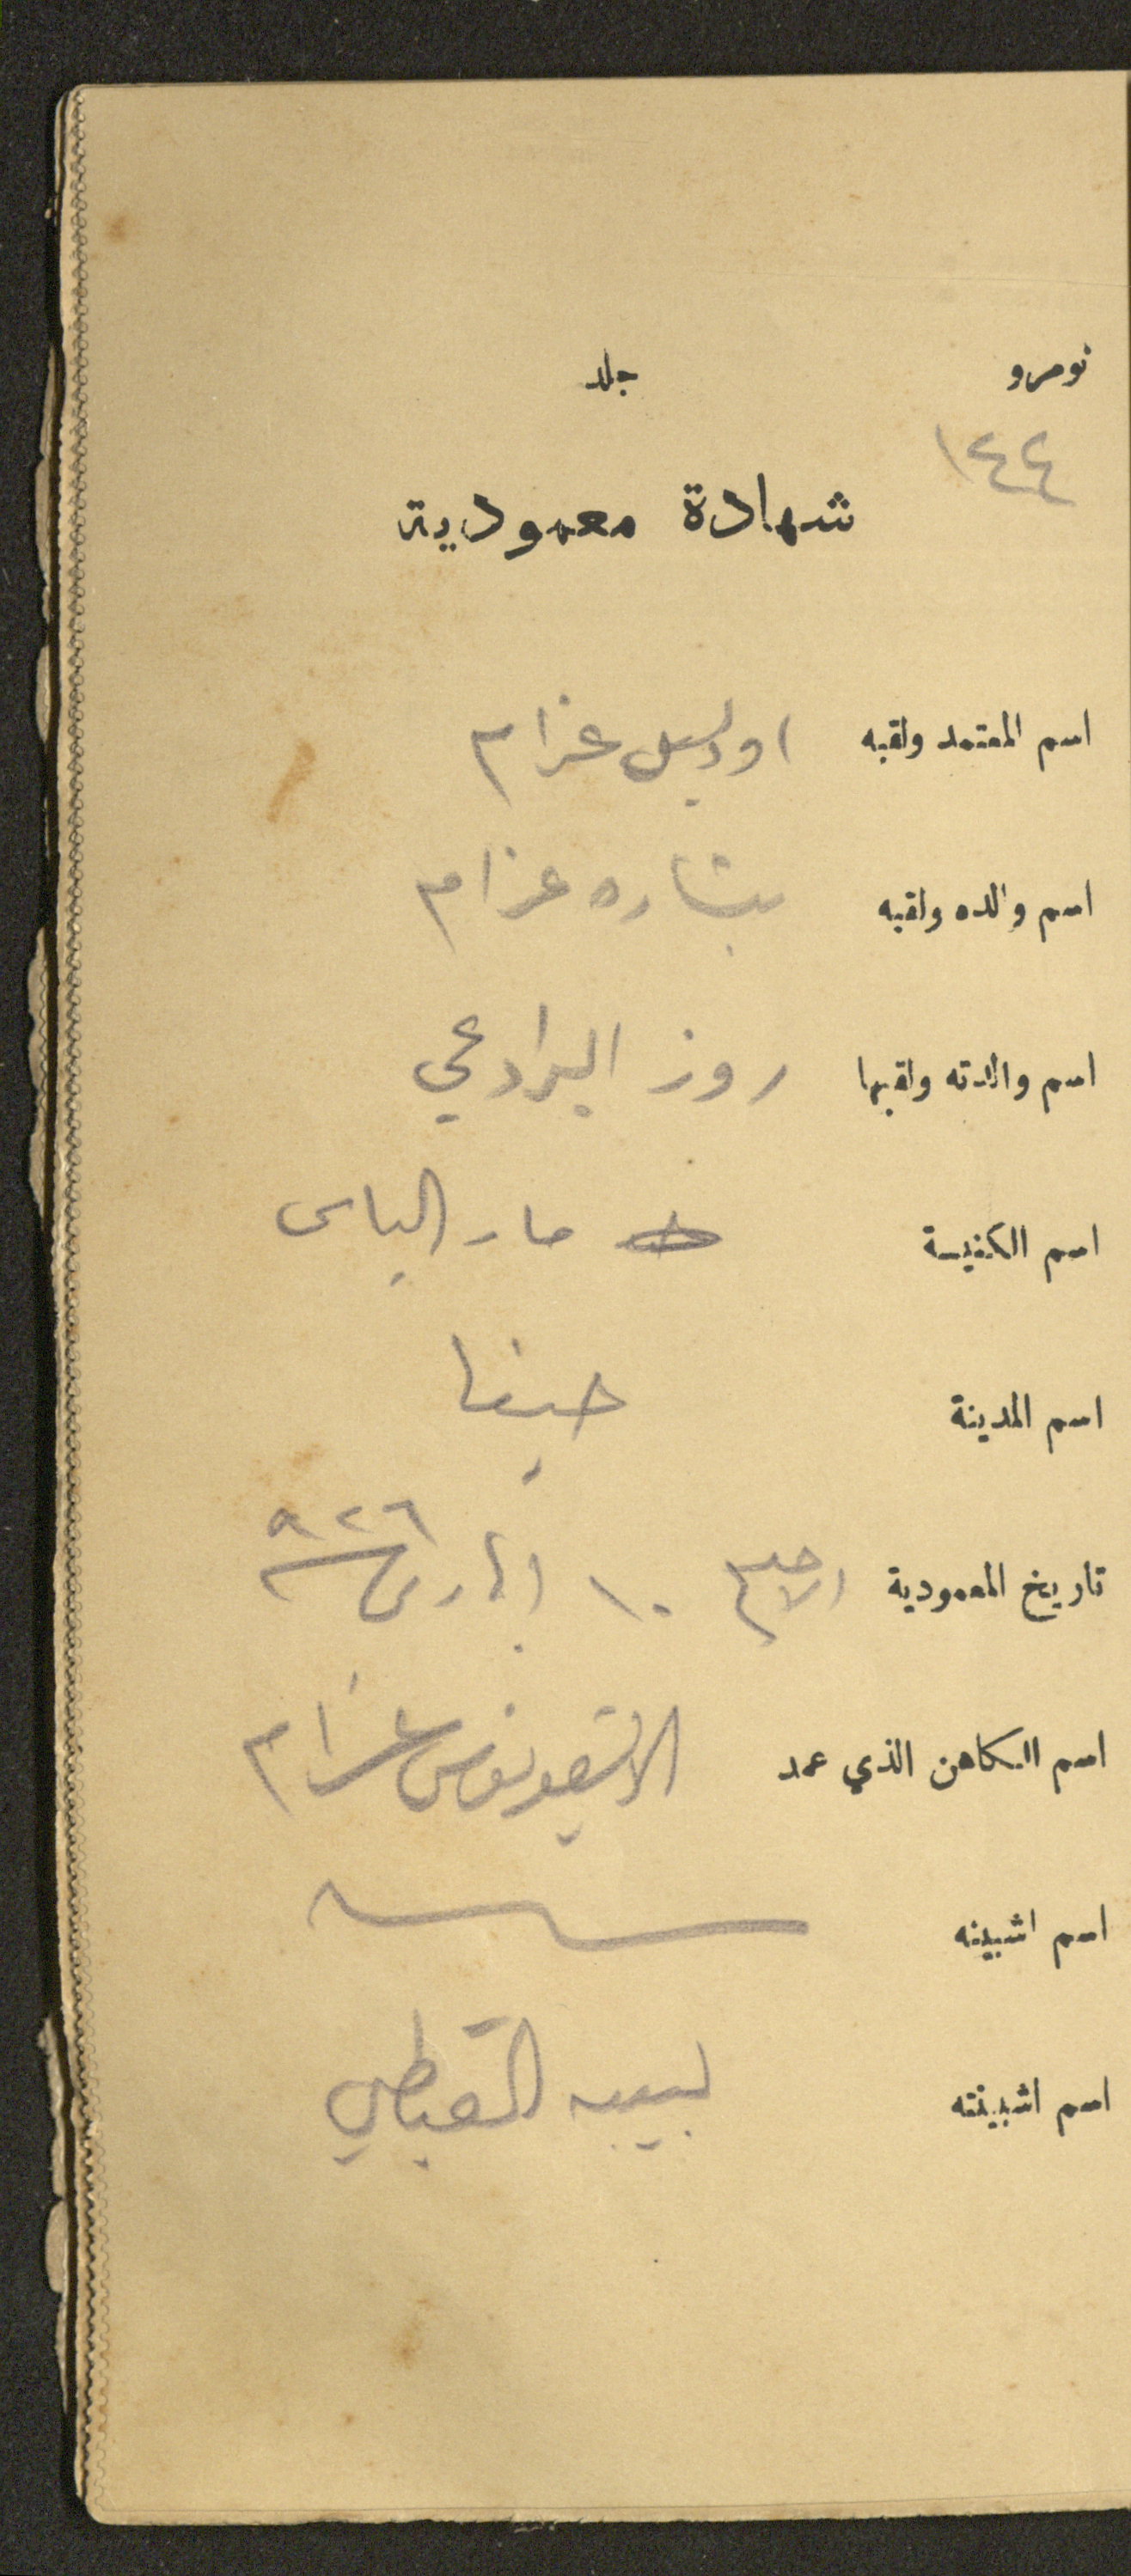 نومرو جلد
١٤٤
شهادة معمودية
اسم المعتمد ولقبه اوديل عزام
اسم والده ولقبه بشاره عزام
اسم والدته ولقبها روز البرادعي
اسم الكنيسة مار الياس
اسم المدينة حيفا
تاريخ المعمودية ١٠ ٩٢٦
اسم الكاهن الذي عمد عزام
اسم اشبينه
اسم اشبينته لبيبه القبطي